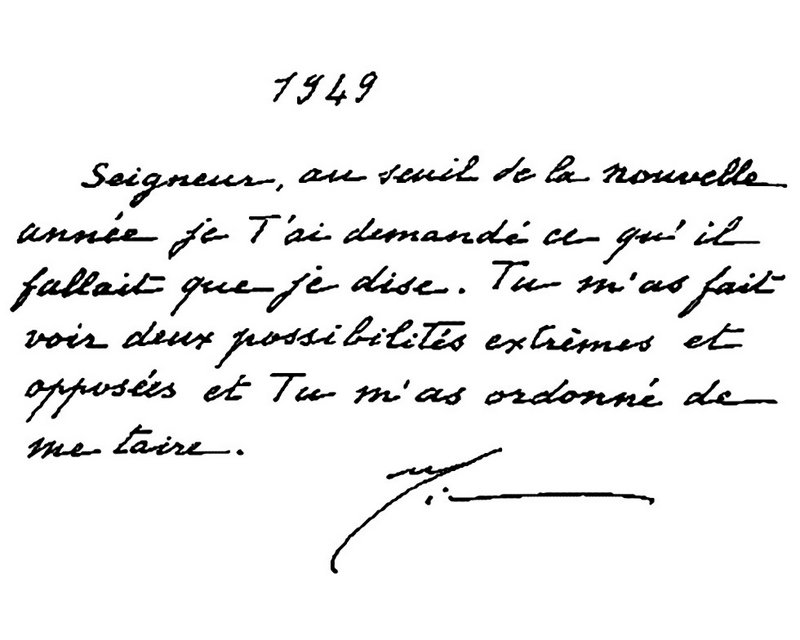 1949
Seigneur, au seuil de la nouvelle
année je T'ai demandé ce qu'il
fallait que je dise. Tu m'as fait
voir deux possibilités extrêmes et
opposées et Tu m'as ordonné de
me taire.